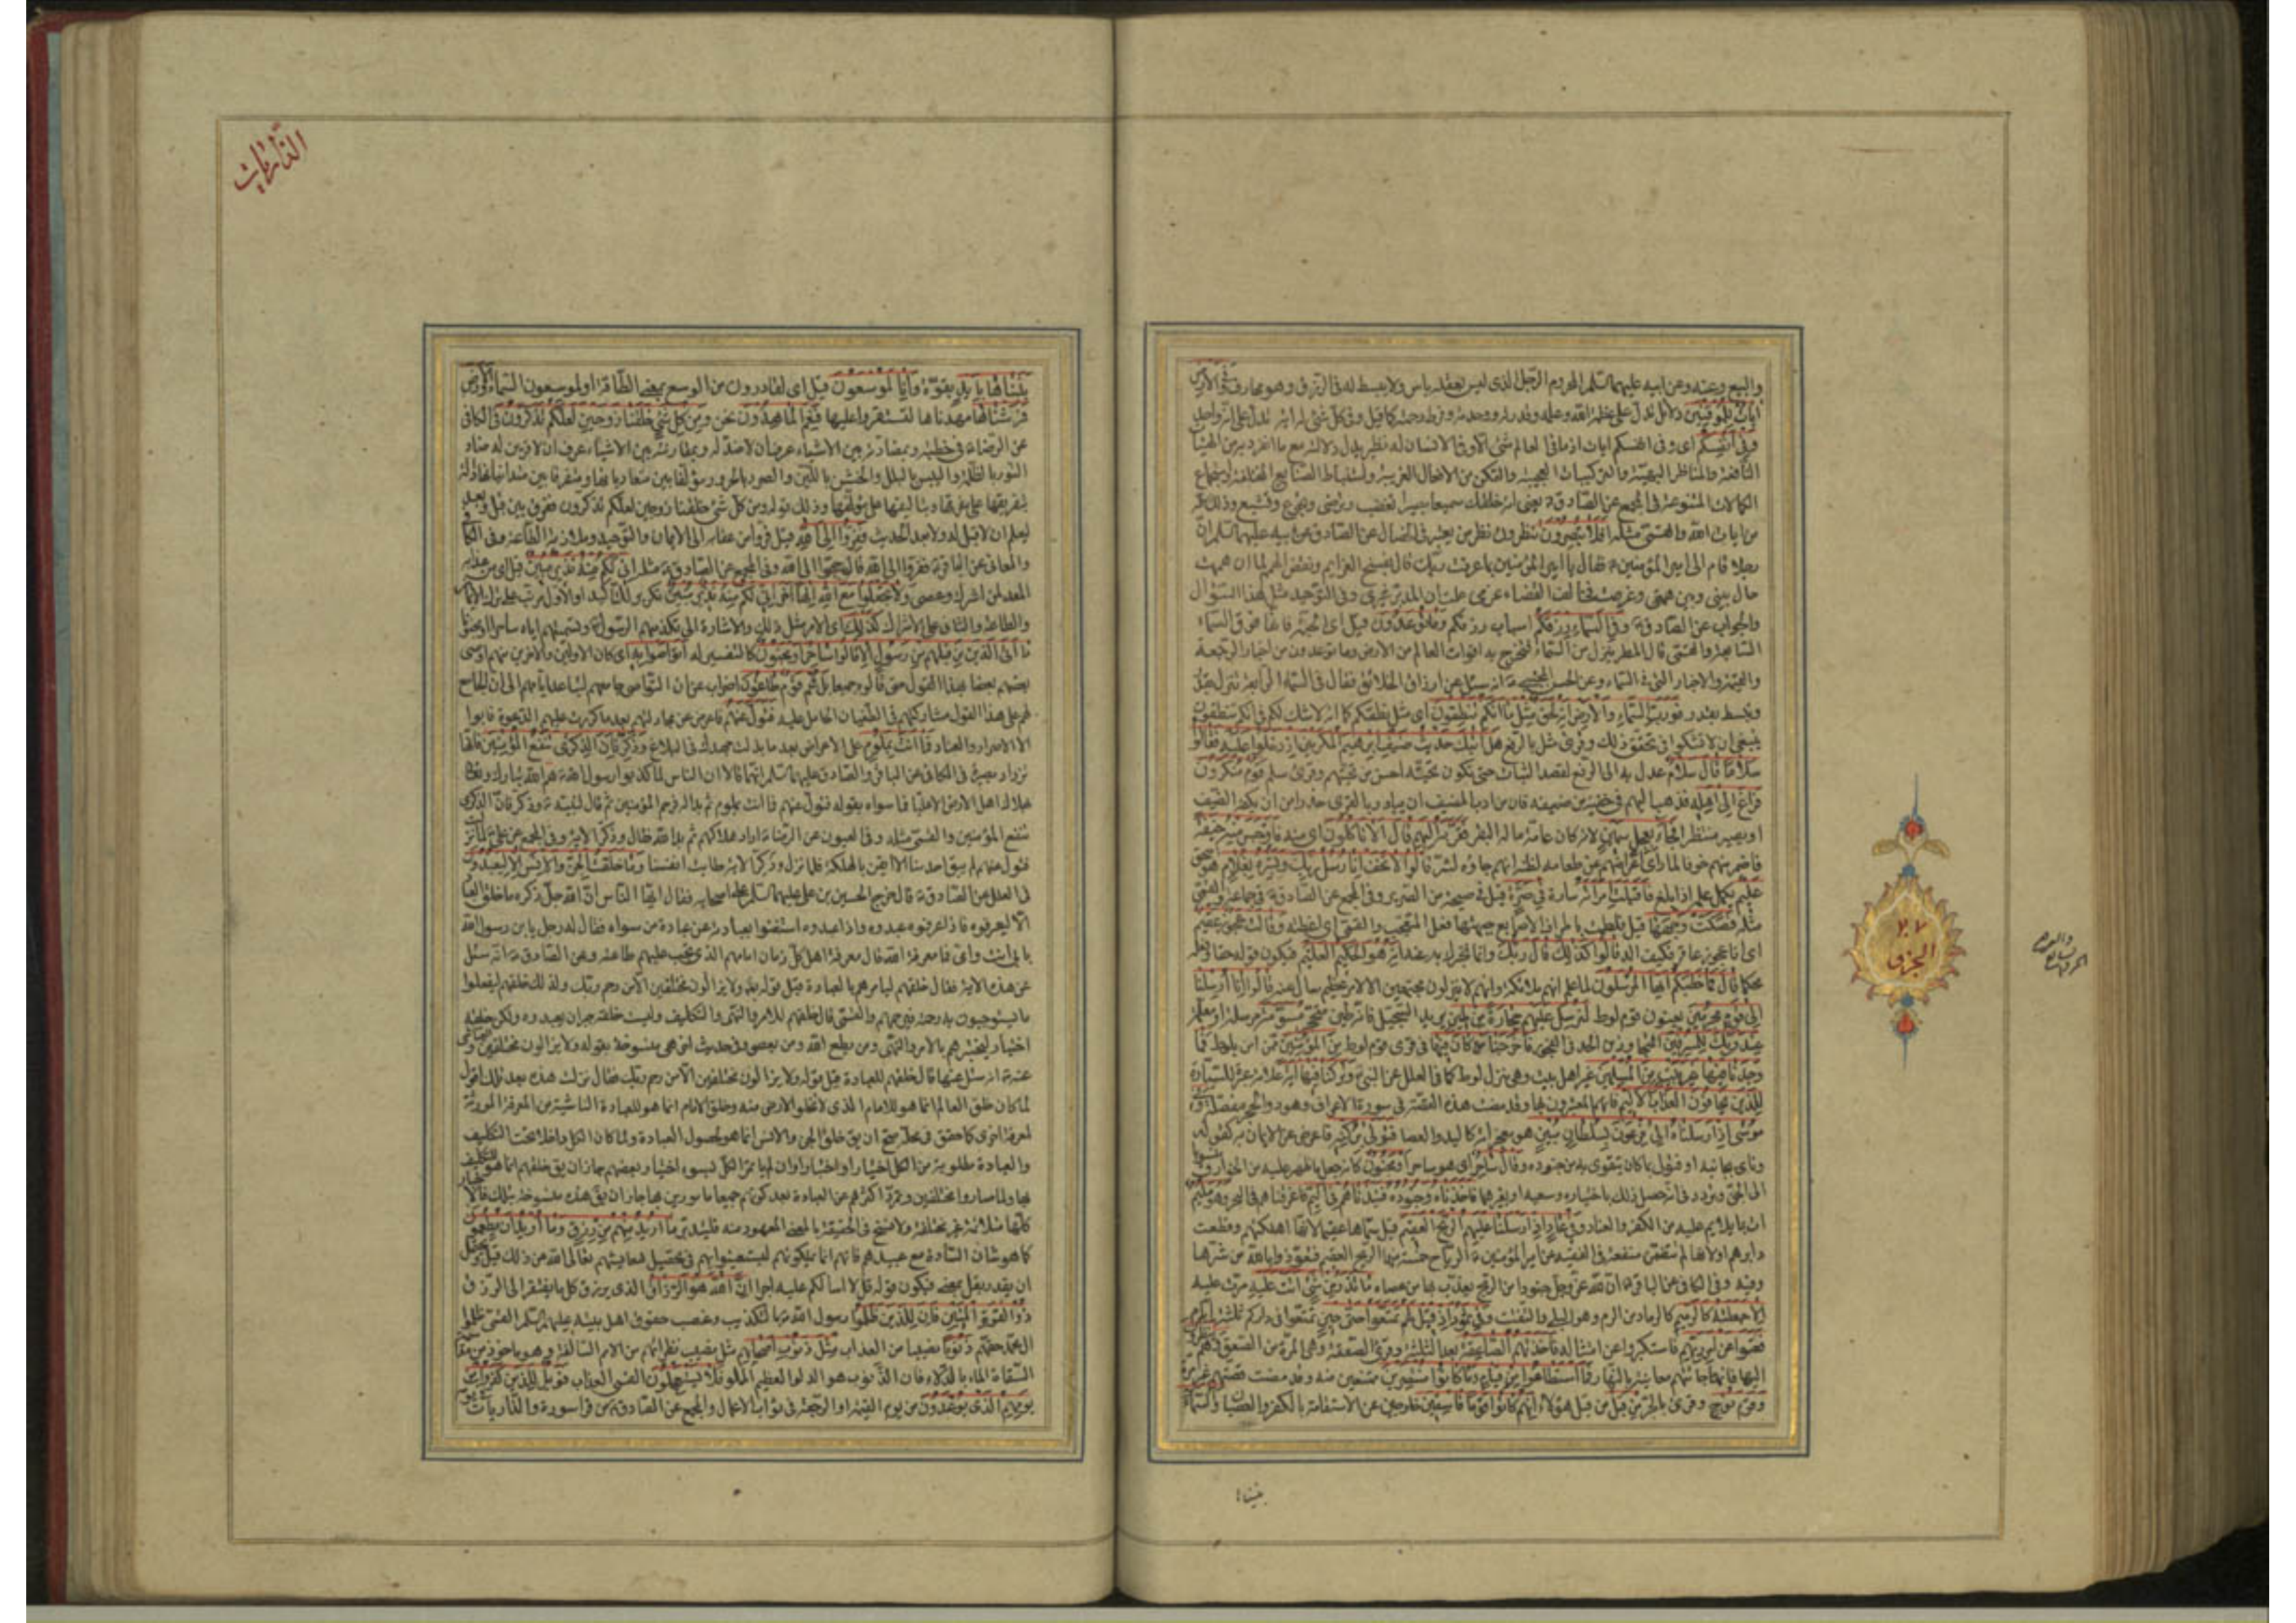 والبيع وعنه وعن ابيه عليهما السلم المحروم الرجل الذى ليس بعقله باس ولا يبسط له فى الرزق وهو محارف وفى الارض
ايات للموقنين دلائل تدل على عظمة الله وعلمه وقدرته ووحدته وفرط رحمته كما قيل وفى كل شئ له اية تدل على انه واحد
وفى انفسكم اى وفى انفسكم ايات اذ ما فى العالم شئ الا وفى الانسان له نظير يدل دلالته مع ما انفرد به من الهيئات
النافعة والمناظر البهية والتركيبات العجيبة والتمكن من الافعال الغريبة واستنباط الصنايع المختلفة واستجماع
الكمالات المتنوعة فى المجمع عن الصادق ع يعنى انه خلقك سميعا بصيرا تغضب وترضى وتجوع وتشبع وذلك كله
من ايات الله والقمى مثله افلا تبصرون تنظرون نظر من يعتبر فى الخصال عن الصادق عن ابيه عليهما السلم ان
رجلا قام الى امير المؤمنين ع فقال يا امير المؤمنين بما عرفت ربك قال بفسخ العزايم ونقض الهمم لما ان هممت
حال بينى وبين همتى وعزمت فخالف القضاء عزمى علمت ان المدبر غيرى وفى التوحيد مثل هذا السؤال
والجواب عن الصادق ع وفى السماء رزقكم اسباب رزقكم وما توعدون قيل اى الجنة فانها فوق السماء
السابعة والقمى قال المطر ينزل من السماء فتخرج به اقوات العالم من الارض وما توعدون من اخبار الرجعة
والقيمة والاخبار التى فى السماء وعن الحسن المجتبى ع انه سئل عن ارزاق الخلائق فقال فى السماء الرابعة تنزل بقدر
وتبسط بقدر فورب السماء والارض انه لحق مثل ما انكم تنطقون اى مثل نطقكم كما انه لا شك لكم فى انكم تنطقون
ينبغى ان لا تشكوا فى تحقق ذلك وقرئ مثل بالرفع هل اتيك حديث ضيف ابرهيم المكرمين اذ دخلوا عليه فقالوا
سلاما قال سلام عدل به الى الرفع لقصد الثبات حتى يكون تحيته احسن من تحيتهم وقرئ سلم قوم منكرون
فراغ الى اهله فذهب اليهم فى خفية من ضيفه فان من ادب المضيف ان يبادر بالقرى حذرا من ان يكفه الضيف
او يصير منتظرا فجاء بعجل سمين لانه كان عامة ماله البقر فقربه اليهم قال الا تاكلون اى منه فاوجس منهم خيفة
فاضمر منهم خوفا لما راى اعراضهم عن طعامه لظنه انهم جاؤه لشر قالوا لا تخف انا رسل ربك وبشروه بغلام هو اسحق
عليم يكمل علمه اذا بلغ فاقبلت امراته سارة فى صرة قيل فى صيحة من الصرير وفى المجمع عن الصادق ع فى جماعة والقمى
مثله فصكت وجهها قيل فلطمت باطراف الاصابع جبهتها فعل المتعجب والقمى اى غطته وقالت عجوز عقيم
اى انا عجوز عاقر فكيف الد قالوا كذلك قال ربك وانما نخبرك به عنه انه هو الحكيم العليم فيكون قوله حقا وفعله
محكما قال فما خطبكم ايها المرسلون لما علم انهم ملائكة وانهم لا ينزلون مجتمعين الا لامر عظيم سال عنه قالوا انا ارسلنا
الى قوم مجرمين يعنون قوم لوط لنرسل عليهم حجارة من طين يريد السجيل فانه طين متحجر مسومة مرسلة او معلمة
عند ربك للمسرفين المجاوزين الحد فى الفجور فاخرجنا من كان فيها فى قرى قوم لوط من المؤمنين ممن امن بلوط فما
وجدنا فيها غير بيت من المسلمين غير اهل بيت وهى منزل لوط كما فى العلل عن النبى ص وتركنا فيها اية علامة عبرة للسيارة
للذين يخافون العذاب الاليم فانهم المعتبرون بها وقد مضت هذه القصة فى سورة الاعراف وهود والحجر مفصلة وفى
موسى اذ ارسلناه الى فرعون بسلطان مبين هو معجزاته كاليد والعصا فتولى بركنه فاعرض عن الايمان به كقوله
وناى بجانبه او فتولى بما كان يتقوى به من جنوده وقال ساحر اى هو ساحر او مجنون كانه جعل ما ظهر عليه من الخوارق منسوبا
الى الجن وتردد فى انه حصل ذلك باختياره وسعيه او بغيرهما فاخذناه وجنوده فنبذناهم فى اليم فاغرقناهم فى البحر وهو مليم
ات بما يلام عليه من الكفر والعناد وفى عاد اذ ارسلنا عليهم الريح العقيم قيل سماها عقيما لانها اهلكتهم وقطعت
دابرهم او لانها لم تتضمن منفعة فى الفقيه عن امير المؤمنين ع الرياح خمسة منها الريح العقيم فنعوذ بالله من شرها
وفيه وفى الكافى عن الباقر ع ان لله عز وجل جنودا من الريح يعذب بها من عصاه ما تذر من شئ اتت عليه مرت عليه
الا جعلته كالرميم كالرماد من الرم وهو البلى والتفتت وفى ثمود اذ قيل لهم تمتعوا حتى حين تمتعوا فى داركم ثلثة ايام
فعتوا عن امر ربهم فاستكبروا عن امتثاله فاخذتهم الصاعقة بعد الثلثة وقرئ الصعقة وهى المرة من الصعق وهم ينظرون
اليها فانها جاءتهم معاينة بالنهار فما استطاعوا من قيام وما كانوا منتصرين ممتنعين منه وقد مضت قصتهم غير مرة
وقوم نوح وقرئ بالجر من قبل من قبل هؤلاء انهم كانوا قوما فاسقين خارجين عن الاستقامة بالكفر والعصيان والسماء
بنيناها
٢٧
الجزو
الذاريات
بنيناها بايد بقوة وانا لموسعون قيل اى لقادرون من الوسع بمعنى الطاقة او لموسعون السماء والارض
فرشناها مهدناها لتستقروا عليها فنعم الماهدون نحن ومن كل شئ خلقنا زوجين لعلكم تذكرون فى الكافى
عن الرضا ع فى خطبة وبمضادته بين الاشياء عرف ان لا ضد له وبمقارنته بين الاشياء عرف ان لا قرين له ضاد
النور بالظلمة واليبس بالبلل والخشن باللين والصرد بالحرور مؤلفا بين متعادياتها ومفرقا بين متدانياتها دالة
بتفريقها على مفرقها وبتاليفها على مؤلفها وذلك قوله ومن كل شئ خلقنا زوجين لعلكم تذكرون ففرق بين قبل وبعد
ليعلم ان لا قبل له ولا بعد الحديث ففروا الى الله قيل فروا من عقابه الى الايمان والتوحيد وملازمة الطاعة وفى الكافى
والمعانى عن الباقر ع ففروا الى الله قال حجوا الى الله وفى المجمع عن الصادق ع مثله انى لكم منه نذير مبين قيل اى من عذابه
المعد لمن اشرك وعصى ولا تجعلوا مع الله الها اخر انى لكم منه نذير مبين تكرير للتاكيد او الاول مرتب على ترك الايمان
والطاعة والثانى على الاشراك كذلك اى الامر مثل ذلك والاشارة الى تكذيبهم الرسول وتسميتهم اياه ساحرا او مجنونا
ما اتى الذين من قبلهم من رسول الا قالوا ساحر او مجنون كالتفسير له اتواصوا به اى كان الاولين والاخرين منهم اوصى
بعضهم بعضا بهذا القول حتى قالوه جميعا بل هم قوم طاغون اضراب عن ان التواصى جامعهم لتباعد ايامهم الى ان الجامع
لهم على هذا القول مشاركتهم فى الطغيان الحامل عليه فتول عنهم فاعرض عن مجادلتهم بعد ما كررت عليهم الدعوة فابوا
الا الاصرار والعناد فما انت بملوم على الاعراض بعد ما بذلت جهدك فى البلاغ وذكر فان الذكرى تنفع المؤمنين فانها
تزداد بصيرة فى الكافى عن الباقر والصادق عليهما السلم انهما قالا ان الناس لما كذبوا رسول الله ص هم الله تبارك وتعالى
بهلاك اهل الارض الا عليا فما سواه بقوله فتول عنهم فما انت بملوم ثم بدا له فرحم المؤمنين ثم قال لنبيه ص وذكر فان الذكرى
تنفع المؤمنين والقمى مثله وفى العيون عن الرضا ع اراد هلاكهم ثم بدا لله فقال وذكر الاية وفى المجمع عن على ع لما نزلت
فتول عنهم لم يبق احد منا الا ايقن بالهلكة فلما نزل وذكر الاية طابت انفسنا وما خلقت الجن والانس الا ليعبدون
فى العلل عن الصادق ع قال خرج الحسين بن على عليهما السلم على اصحابه فقال ايها الناس ان الله جل ذكره ما خلق العباد
الا ليعرفوه فاذا عرفوه عبدوه واذا عبدوه استغنوا بعبادته عن عبادة من سواه فقال له رجل يا بن رسول الله
بابى انت وامى فما معرفة الله قال معرفة اهل كل زمان امامهم الذى يجب عليهم طاعته وعن الصادق ع انه سئل
عن هذه الاية فقال خلقهم ليامرهم بالعبادة قيل قوله تعالى ولا يزالون مختلفين الا من رحم ربك ولذلك خلقهم ليفعلوا
ما يستوجبون به رحمته فيرحمهم والقمى قال خلقهم للامر والنهى والتكليف وليست خلقته جبران يعبدوه ولكن خلقة
اختيار ليختبرهم بالامر والنهى ومن يطع الله ومن يعصى وفى حديث اخر هى منسوخة بقوله ولا يزالون مختلفين والعياشى
عنه ع انه سئل عنها قال خلقهم للعبادة قيل قوله ولا يزالون مختلفين الا من رحم ربك فقال نزلت هذه بعد تلك اقول
لما كان خلق العالم انما هو للامام الذى لا تخلو الارض منه وخلق الامام انما هو للعبادة الناشية من المعرفة المورثة
لمعرفة اخرى كما حقق فى محله صح ان يق خلق الجن والانس انما هو لحصول العبادة ولما كان الكل داخلا تحت التكليف
والعبادة مطلوبة من الكل اختيارا واختبارا وان لم يات بها الكل لسوء اختيار بعضهم جاز ان يق خلقهم انما هو للتكليف
بها ولما صاروا مختلفين وتمرد اكثرهم عن العبادة بعد كونهم جميعا مامورين بها جاز ان يق هذه منسوخة بتلك فالاخبار
كلها متلائمة غير مختلفة ولا نسخ فى الحقيقة بالمعنى المعهود منه فليتدبر ما اريد منهم من رزق وما اريد ان يطعمون
كما هو شان السادة مع عبيدهم فانهم انما يملكونهم ليستعينوا بهم فى تحصيل معايشهم تعالى الله عن ذلك قيل ويحتمل
ان يقدر بقل بمعنى فيكون قوله قل لا اسالكم عليه اجرا ان الله هو الرزاق الذى يرزق كل ما يفتقر الى الرزق
ذو القوة المتين فان للذين ظلموا رسول الله ص بالتكذيب وغصب حقوق اهل بيته عليهم السلم القمى ظلموا
ال محمد حقهم ذنوبا نصيبا من العذاب مثل ذنوب اصحابهم مثل نصيب نظرائهم من الامم السالفة وهو ماخوذ من مقاسمة
السقاة الماء بالدلاء فان الذنوب هو الدلو العظيم المملو فلا يستعجلون القمى العذاب فويل للذين كفروا من
يومهم الذى يوعدون من يوم القيمة او الرجعة فى ثواب الاعمال والمجمع عن الصادق ع من قرا سورة والذاريات